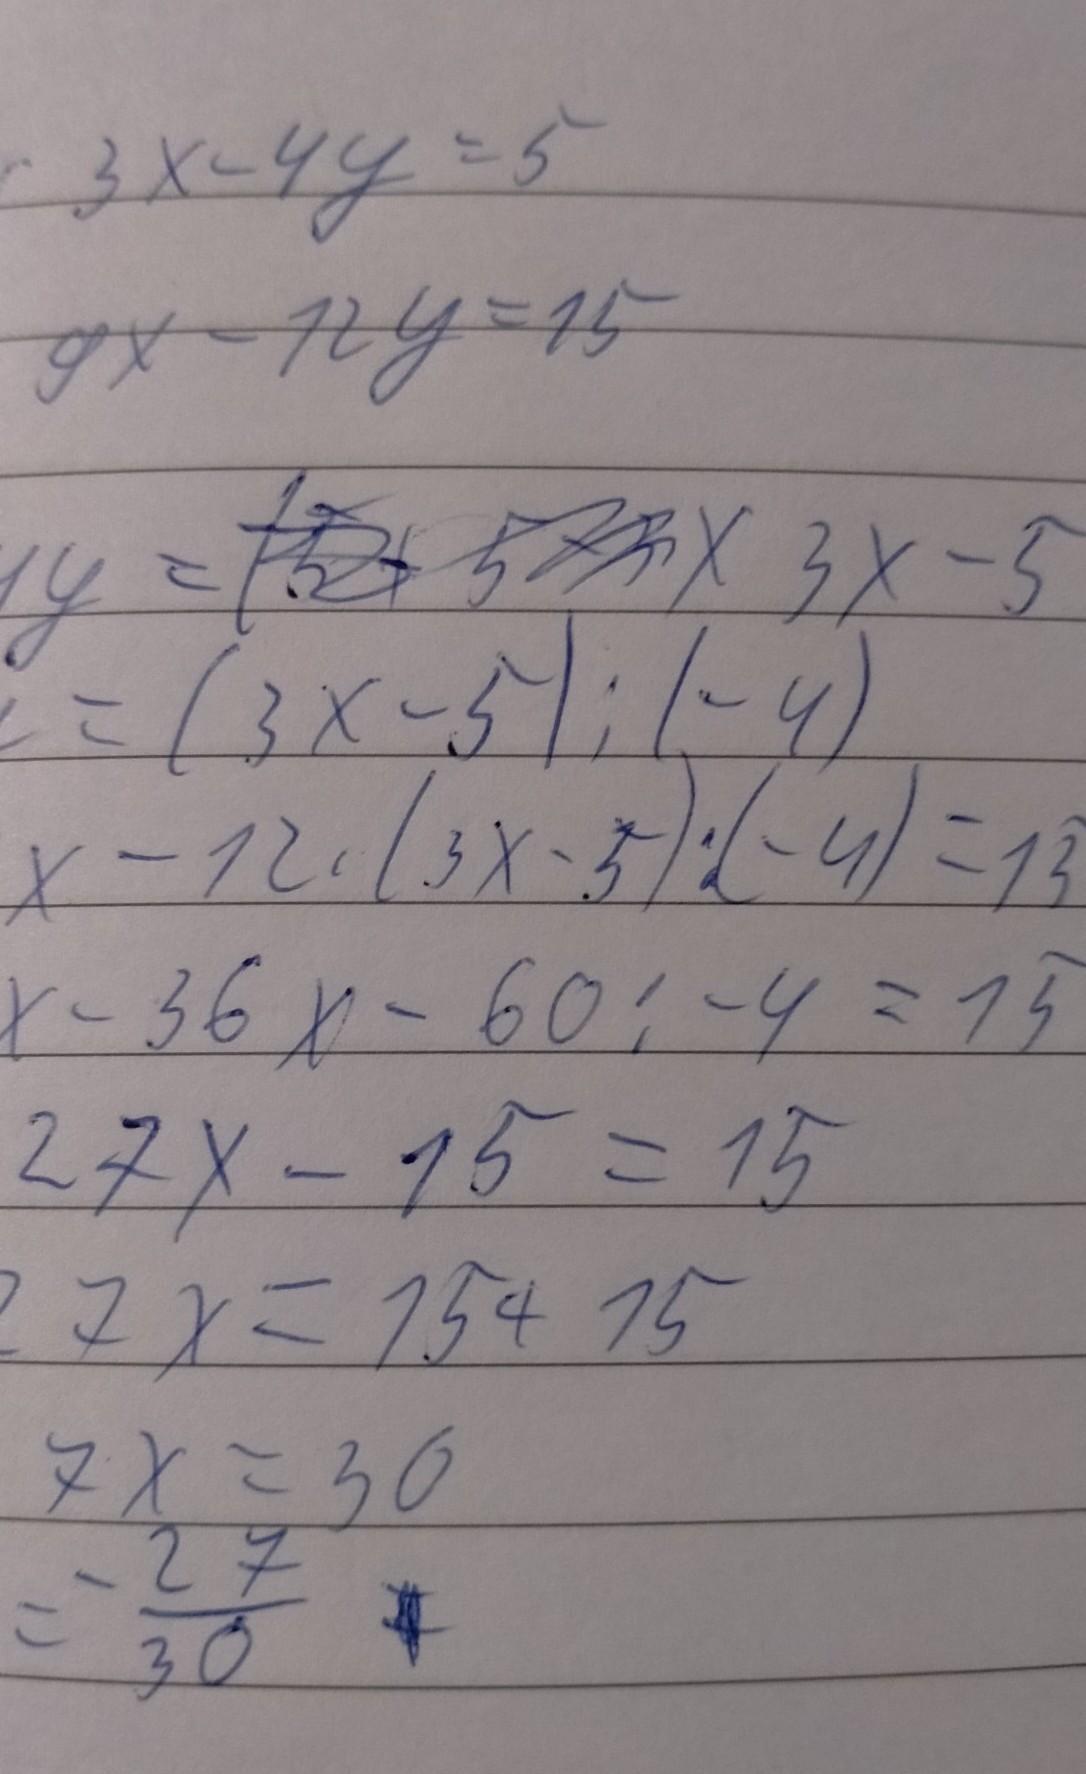 3x-4y=5
9x-12y=15
4y = 3x-5
= (3x-5):(-4)
x-12·(3x-5):(-4)=15
x-36x-60:-4=15
27x-15=15
27x=15+15
7x=30
=-27/30